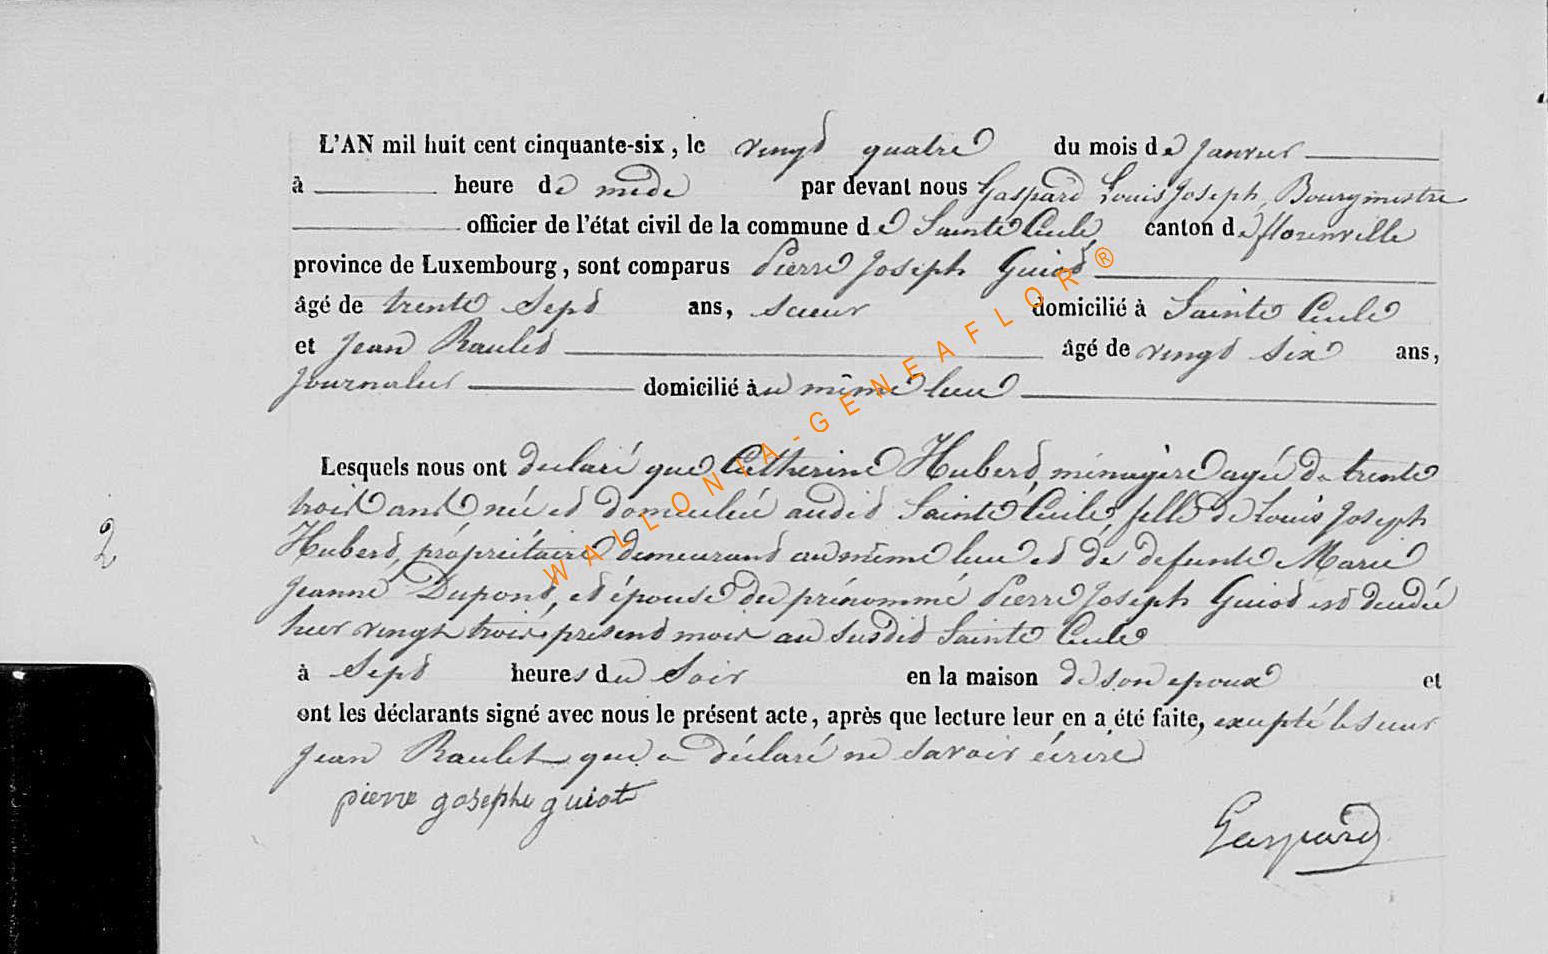 L'AN mil huit cent cinquante-six, le vingt quatre du mois de Janvier
à heure de midi par devant nous Gaspard Louis Joseph, Bourgmestre
officier de l'état civil de la commune de Sainte Cécile canton de florenville
province de Luxembourg, sont comparus Pierre Joseph Guiot
âgé de trente Sept ans, scieur domicilié à Sainte Cécile
et Jean Raulet âgé de vingt six ans,
Journalier domicilié au même lieu
Lesquels nous ont declaré que Catherine Hubert, ménagère agée de trente
2
trois ans née et domiciliée audit Sainte Cécile, fille de Louis Joseph
Hubert, propriétaire demeurant au même lieu et de defunte Marie
Jeanne Dupont, et épouse du prénommé Pierre Joseph Guiot est decedée
hier vingt trois present mois au susdit Sainte Cécile
à Sept heures du Soir en la maison de son epoux et
ont les déclarants signé avec nous le présent acte, après que lecture leur en a été faite, excepté le sieur
Jean Raulet qui a déclaré ne savoir écrire
pierre gosephe guiot
Gaspard
WALLONIA-GENEAFLOR®